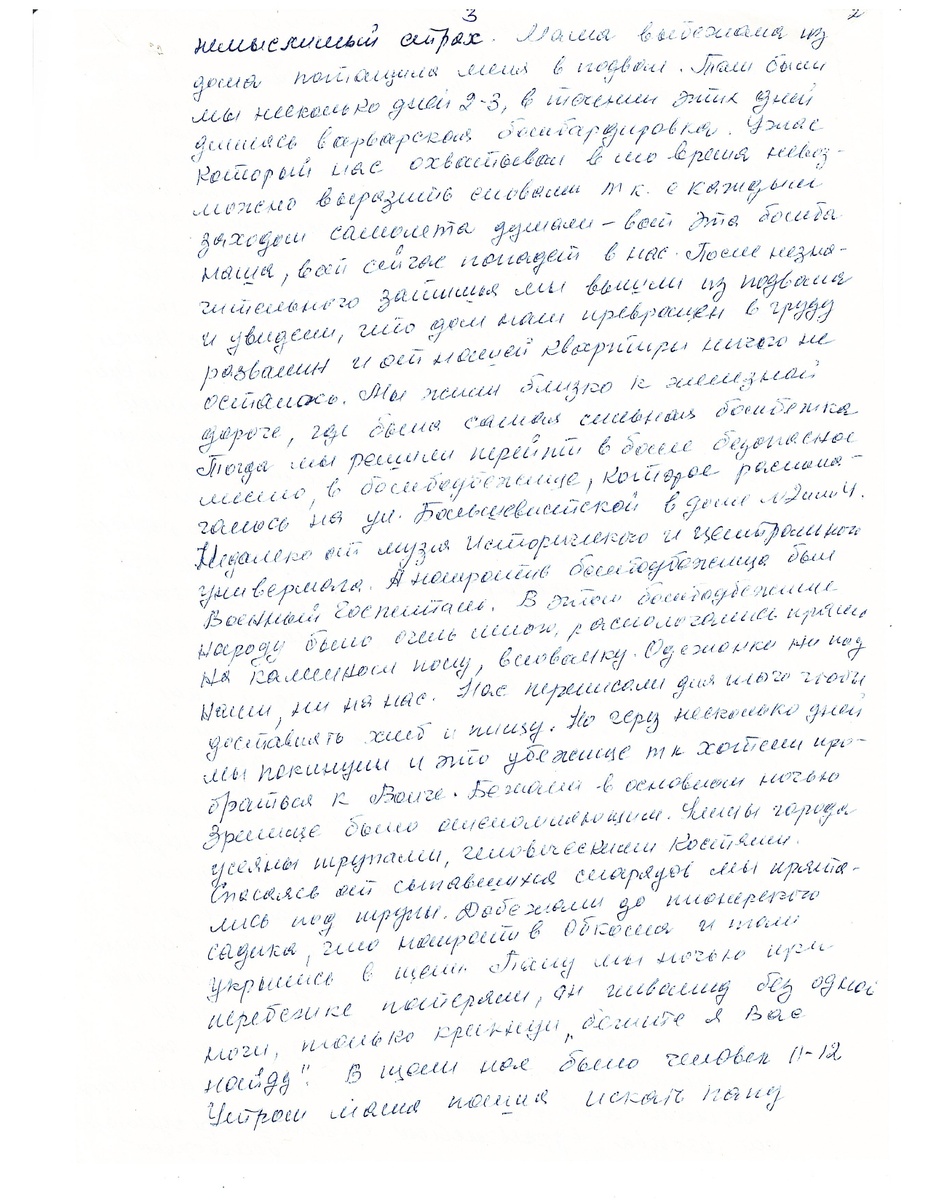 3 2
немыслимый страх. Мама выбежала из
дома потащила меня в подвал. Там были
мы несколько дней 2-3, в течении этих дней
длилась варварская бомбардировка. Ужас
который нас охватывал в то время невоз-
можно выразить словами т к. с каждым
заходом самолета думали – вот эта бомба
наша, вот сейчас попадет в нас. После незна-
чительного затишья мы вышли из подвала
и увидели, что дом наш превращен в груду
развалин и от нашей квартиры ничего не
осталось. Мы жили близко к железной
дороге, где была самая сильная бомбежка
Тогда мы решили перейти в более безопасное
место, в бомбоубежище, которое распола-
галось на ул. Большевистской в доме №2 или 4.
Недалеко от музея Исторического и Центрального
универмага. А напротив бомбоубежища был
Военный Госпиталь. В этом бомбоубежище
народу было очень много, располагались прямо
на каменном полу, вповалку. Одежонка ни под
нами, ни на нас. Нас переписали для того чтобы
доставлять хлеб и пищу. Но через несколько дней
мы покинули и это убежище т к хотели про-
браться к Волге. Бежали в основном ночью
Зрелище было ошеломляющим. Улицы города
усеяны трупами, человеческими костями.
Спасаясь от сыпавшихся снарядов мы прята-
лись под трупы. Добежали до пионерского
садика, что напротив Обкома и там
укрылись в щели. Папу мы ночью при
перебежке потеряли, он инвалид без одной
ноги, только крикнул „бегите я Вас
найду". В щели нас было человек 11-12
Утром мама пошла искать папу